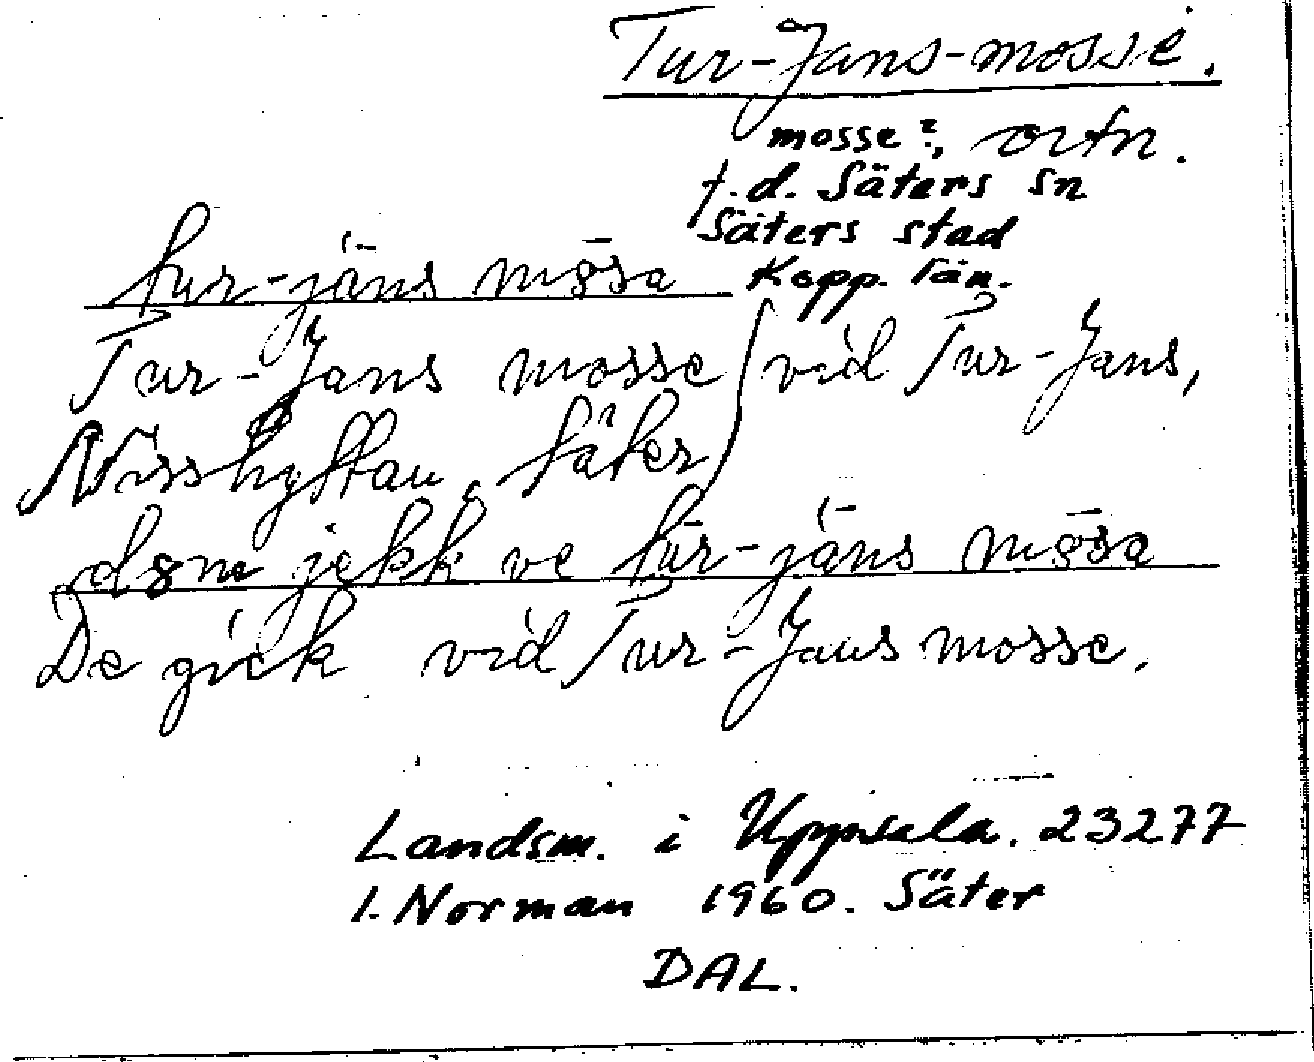 Tur-Jans-mosse.
mosse?, ortn.
f.d. Säters sn
Säters stad
Kopp. län.
tur-jäns
Tur-Jans mosse / vid Tur-Jans,
Nisshyttan, Säter
jekk ve tur-jäns
De gick vid Tur-Jans mosse.
Landsm. i Uppsala. 23277
I. Norman 1960. Säter
DAL.